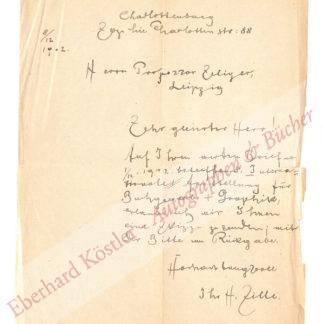 Charlottenburg
Sophie Charlotten str: 88
8/12
1902.
Herrn Professor Seliger,
Leipzig
Sehr geehrter Herr!
Auf Ihren werten Brief v.
12. 1902. betreffend Interna-
tionale Ausstellung für
Buchgewerbe + Graphik,
erlaube ich mir Ihnen
eine Skizze zu senden; mit
der Bitte um Rückgabe.
Hochachtungsvoll
Ihr H. Zille.
Eberhard Köstler Autographen & Bücher